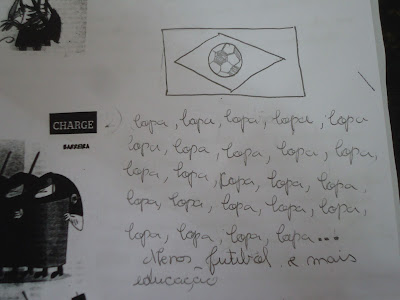 CHARGE
BARREIRA
2) Copa, Copa, Copa, Copa, Copa
Copa, Copa, Copa, Copa, Copa,
Copa, Copa, Copa, Copa, Copa,
Copa, Copa, Copa, Copa, Copa,
Copa, Copa, Copa, Copa...
Menos futebol e mais
educação